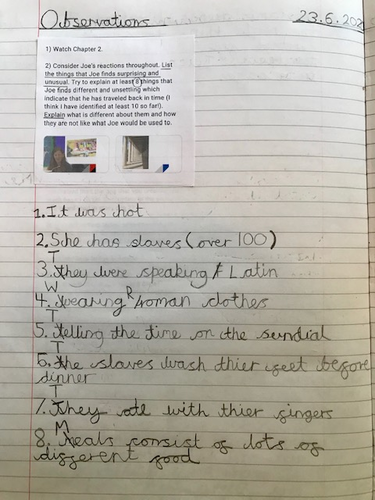 Observations
23.6.202
1) Watch Chapter 2.
2) Consider Joe's reactions throughout. List
the things that Joe finds surprising and
unusual. Try to explain at least 8 things that
Joe finds different and unsettling which
indicate that he has traveled back in time (I
think I have identified at least 10 so far!).
Explain what is different about them and how
they are not like what Joe would be used to.
1. It was hot
2. She has slaves (over 100)
3. They were speaking Latin
4. Wearing Roman clothes
5. Telling the time on the sundial
6. The slaves wash thier feet before
dinner
7. They ate with thier fingers
8. Meals consist of lots of
different food